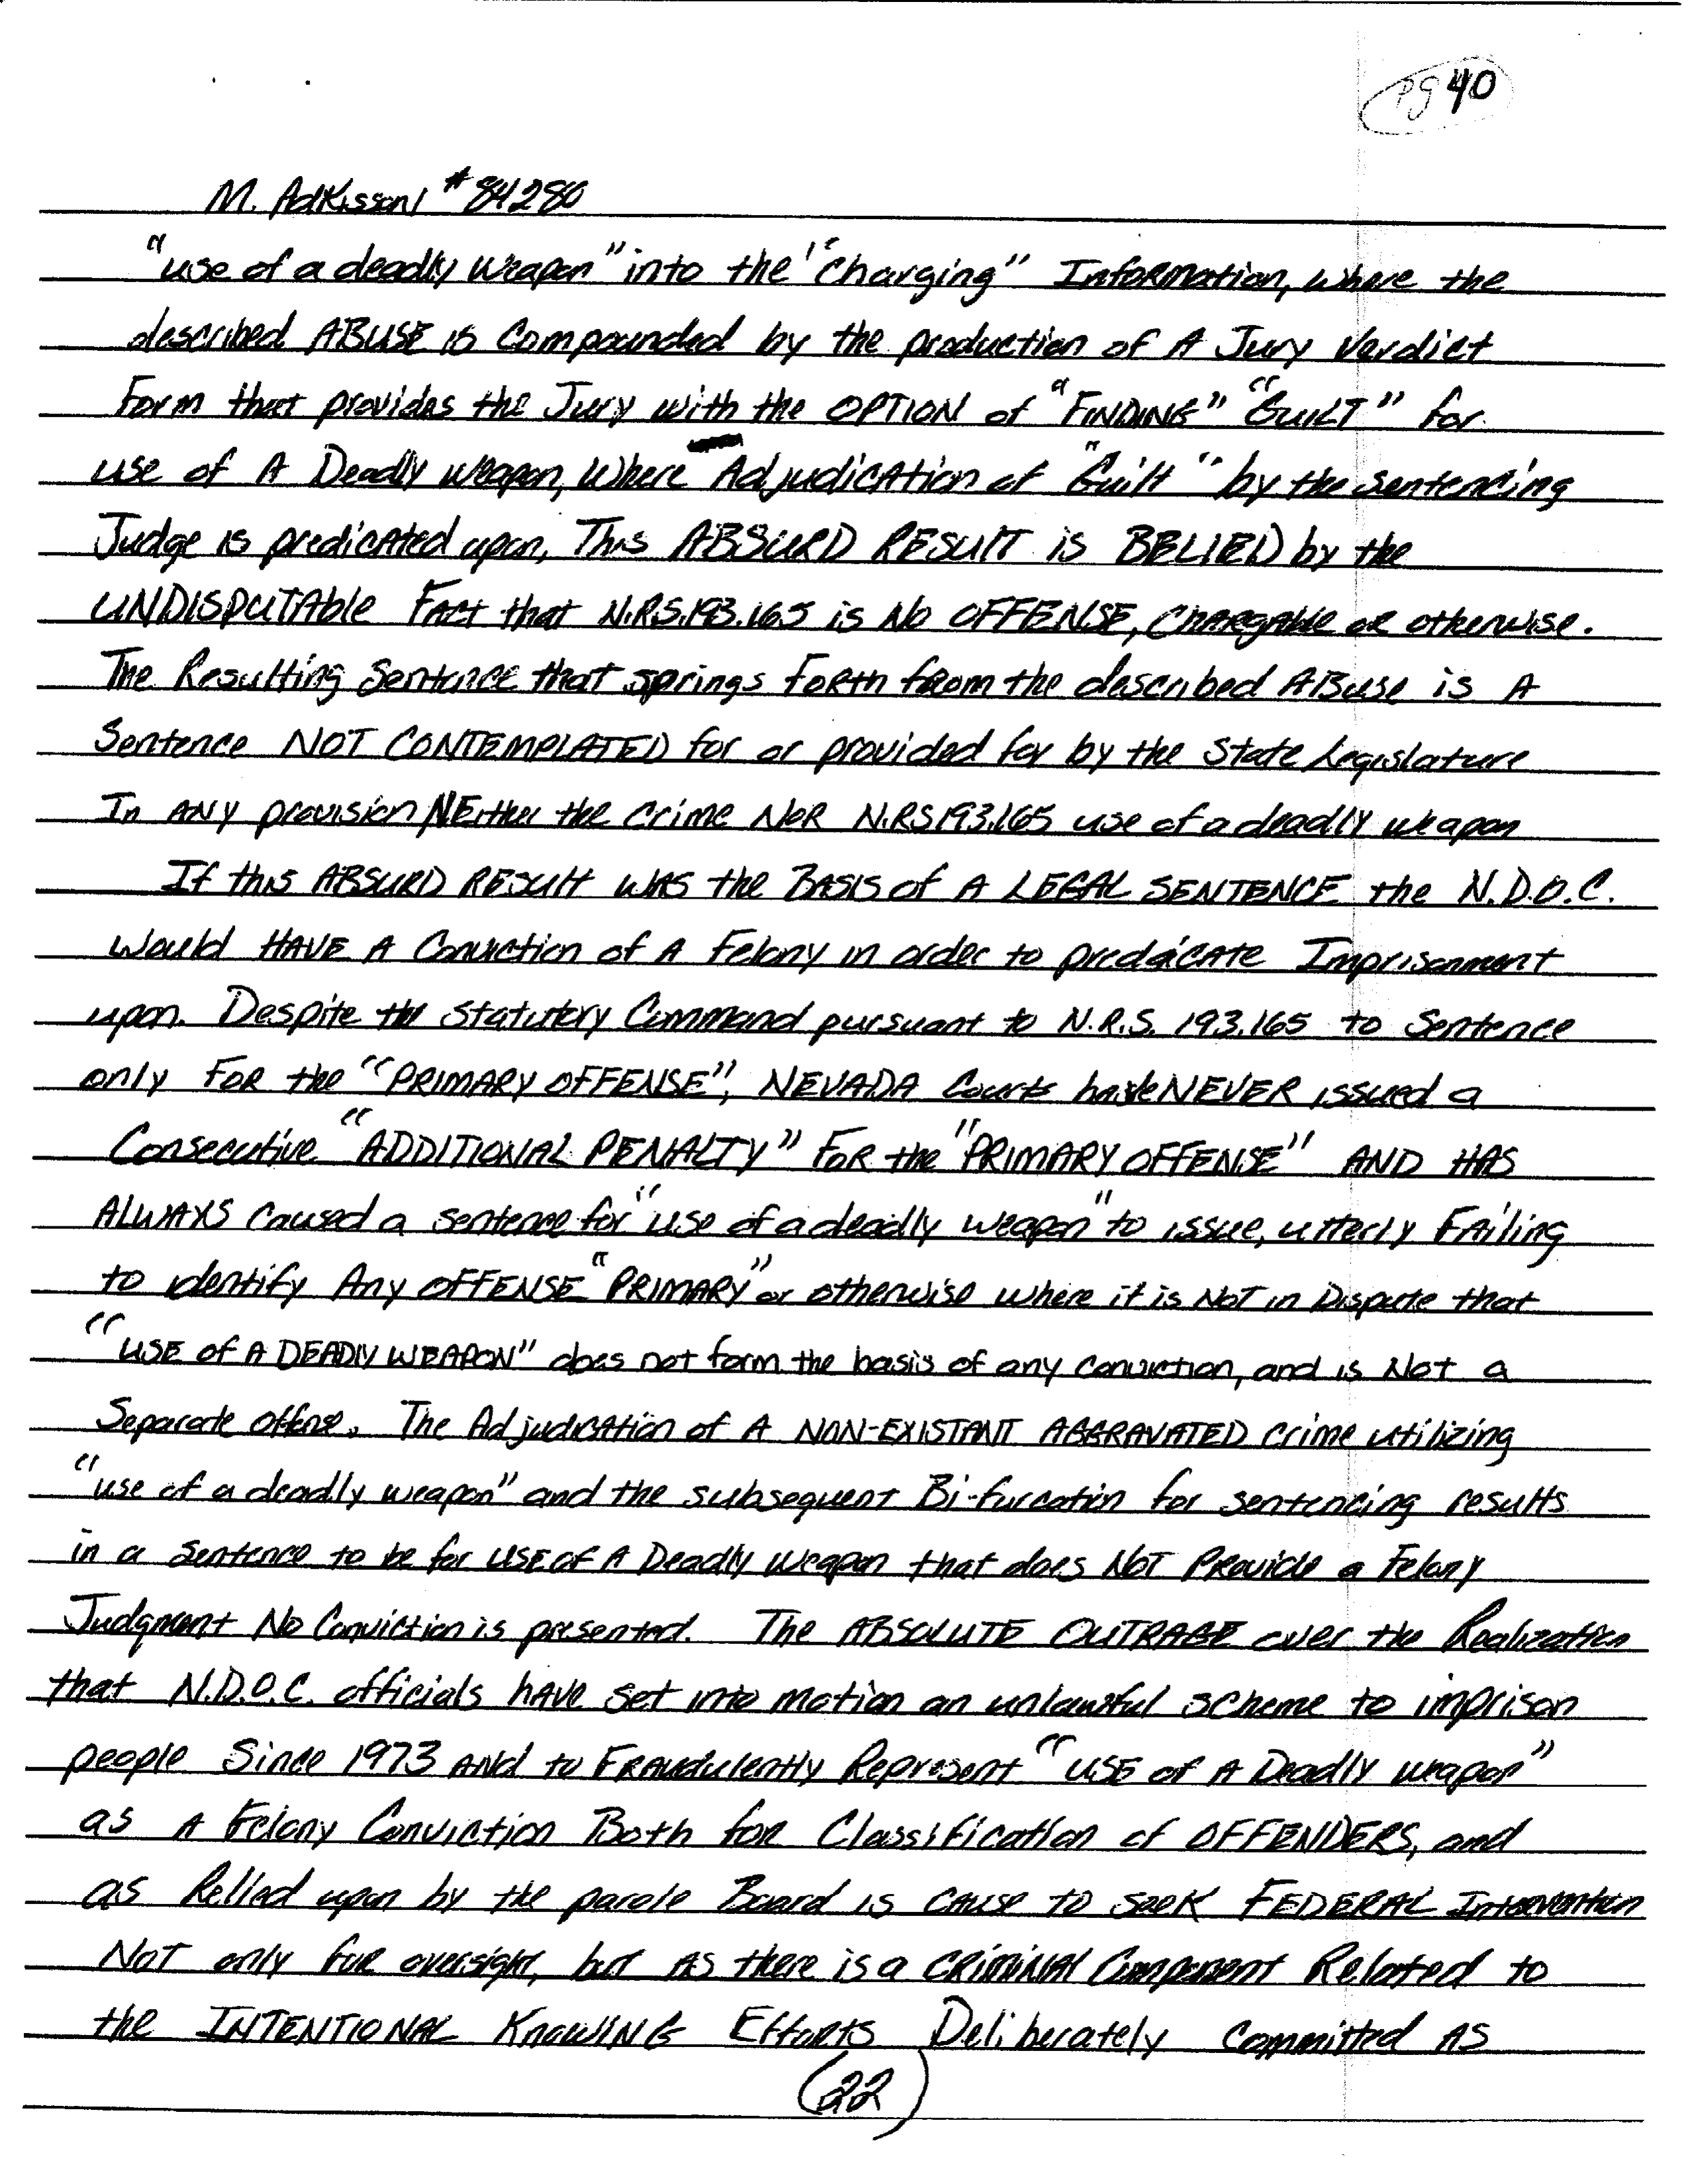 pg 40
M. Adkisson #84280
"use of a deadly weapon" into the "Charging" Information, where the
described ABUSE is Compounded by the production of A Jury Verdict
Form that provides the Jury with the OPTION of "FINDING" "GUILT" for
use of A Deadly weapon, Where Adjudication of "Guilt" by the sentencing
Judge is predicated upon, This ABSURD RESUlT is BELIED by the
UNDISPUTAble FAct that N.R.S.193.165 is No OFFENSE, CHARGAble or otherwise.
The Resulting Sentence that springs FoRth from the described ABuse is A
Sentence NOT CONTEMPLATED for or provided for by the State Legislature
In ANY provision NEither the crime NoR N.R.S193.165 use of a deadly weapon
If this ABSURD RESUlt WAS the BASIS of A LEGAL SENTENCE the N.D.O.C.
Would HAVE A Conviction of A Felony in order to predicate Imprisonment
upon. Despite the Statutory Command pursuant to N.R.S. 193.165 to Sentence
only FOR the "PRIMARY OFFENSE", NEVADA Courts have NEVER issued a
Consecutive "ADDITIONAL PENALTY" FoR the "PRIMARY OFFENSE" AND HAS
ALWAYS Caused a sentence for "use of a deadly weapon" to issue, utterly FAiling
to identify Any OFFENSE "PRIMARY" or otherwise where it is Not in Dispute that
"USE of A DEADLY WEAPON" does not form the basis of any conviction, and is Not a
Separate offense. The Adjudication of A NON-EXISTANT AGGRAVATED crime utilizing
"use of a deadly weapon" and the subsequent Bi-furcatin for sentencing results
in a Sentence to be for USE of A Deadly Weapon that does NOT Provide a Felony
Judgment No Conviction is presented. The ABSOLUTE OUTRAGE over the Realization
that N.D.O.C. officials hAve set into motion an unlawful scheme to imprison
people Since 1973 ANd to FRAudulently Represent "USE of A Deadly weapon"
as A Felony Conviction Both for Classification of OFFENDERS, and
as Relied upon by the parole Board is Cause to seek FEDERAL Intervention
Not only for oversight, but AS there is a CRIMINAl Component Related to
the INTENTIONAL KNOWING Efforts Deliberately Committed AS
(22)